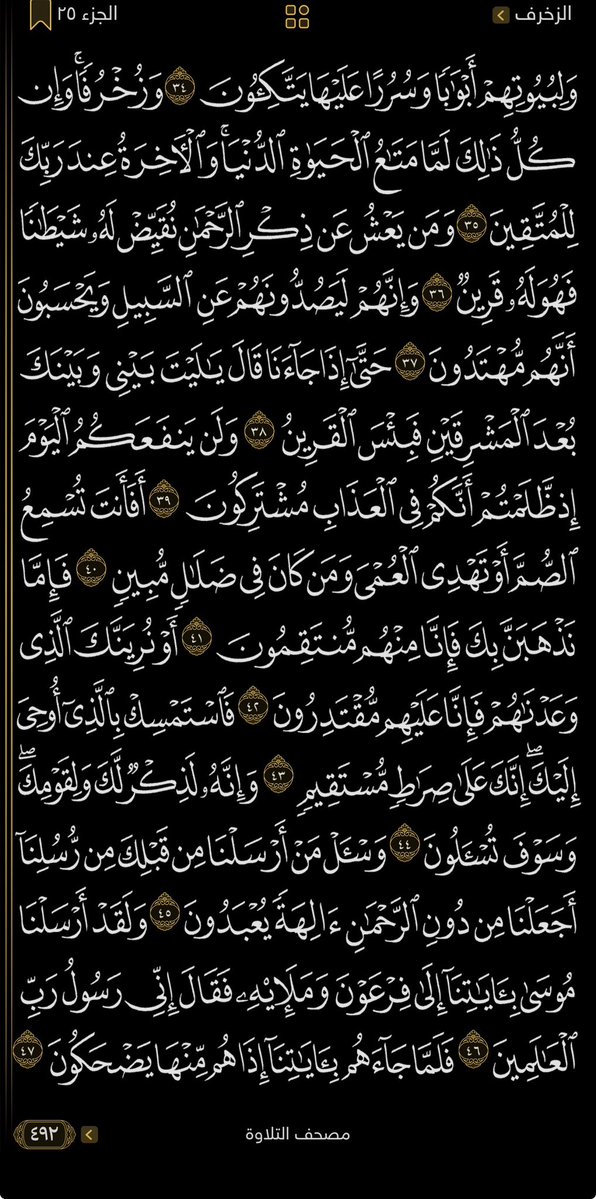 الزخرف
الجزء ٢٥
وَلِبُيُوتِهِمْ أَبْوَٰبًا وَسُرُرًا عَلَيْهَا يَتَّكِـُٔونَ ٣٤ وَزُخْرُفًا ۚ وَإِن
كُلُّ ذَٰلِكَ لَمَّا مَتَـٰعُ ٱلْحَيَوٰةِ ٱلدُّنْيَا ۚ وَٱلْـَٔاخِرَةُ عِندَ رَبِّكَ
لِلْمُتَّقِينَ ٣٥ وَمَن يَعْشُ عَن ذِكْرِ ٱلرَّحْمَـٰنِ نُقَيِّضْ لَهُۥ شَيْطَـٰنًا
فَهُوَ لَهُۥ قَرِينٌ ٣٦ وَإِنَّهُمْ لَيَصُدُّونَهُمْ عَنِ ٱلسَّبِيلِ وَيَحْسَبُونَ
أَنَّهُم مُّهْتَدُونَ ٣٧ حَتَّىٰٓ إِذَا جَآءَنَا قَالَ يَـٰلَيْتَ بَيْنِى وَبَيْنَكَ
بُعْدَ ٱلْمَشْرِقَيْنِ فَبِئْسَ ٱلْقَرِينُ ٣٨ وَلَن يَنفَعَكُمُ ٱلْيَوْمَ
إِذ ظَّلَمْتُمْ أَنَّكُمْ فِى ٱلْعَذَابِ مُشْتَرِكُونَ ٣٩ أَفَأَنتَ تُسْمِعُ
ٱلصُّمَّ أَوْ تَهْدِى ٱلْعُمْىَ وَمَن كَانَ فِى ضَلَـٰلٍ مُّبِينٍ ٤٠ فَإِمَّا
نَذْهَبَنَّ بِكَ فَإِنَّا مِنْهُم مُّنتَقِمُونَ ٤١ أَوْ نُرِيَنَّكَ ٱلَّذِى
وَعَدْنَـٰهُمْ فَإِنَّا عَلَيْهِم مُّقْتَدِرُونَ ٤٢ فَٱسْتَمْسِكْ بِٱلَّذِىٓ أُوحِىَ
إِلَيْكَ ۖ إِنَّكَ عَلَىٰ صِرَٰطٍ مُّسْتَقِيمٍ ٤٣ وَإِنَّهُۥ لَذِكْرٌ لَّكَ وَلِقَوْمِكَ ۖ
وَسَوْفَ تُسْـَٔلُونَ ٤٤ وَسْـَٔلْ مَنْ أَرْسَلْنَا مِن قَبْلِكَ مِن رُّسُلِنَآ
أَجَعَلْنَا مِن دُونِ ٱلرَّحْمَـٰنِ ءَالِهَةً يُعْبَدُونَ ٤٥ وَلَقَدْ أَرْسَلْنَا
مُوسَىٰ بِـَٔايَـٰتِنَآ إِلَىٰ فِرْعَوْنَ وَمَلَإِي۟هِۦ فَقَالَ إِنِّى رَسُولُ رَبِّ
ٱلْعَـٰلَمِينَ ٤٦ فَلَمَّا جَآءَهُم بِـَٔايَـٰتِنَآ إِذَا هُم مِّنْهَا يَضْحَكُونَ ٤٧
مصحف التلاوة
٤٩٢